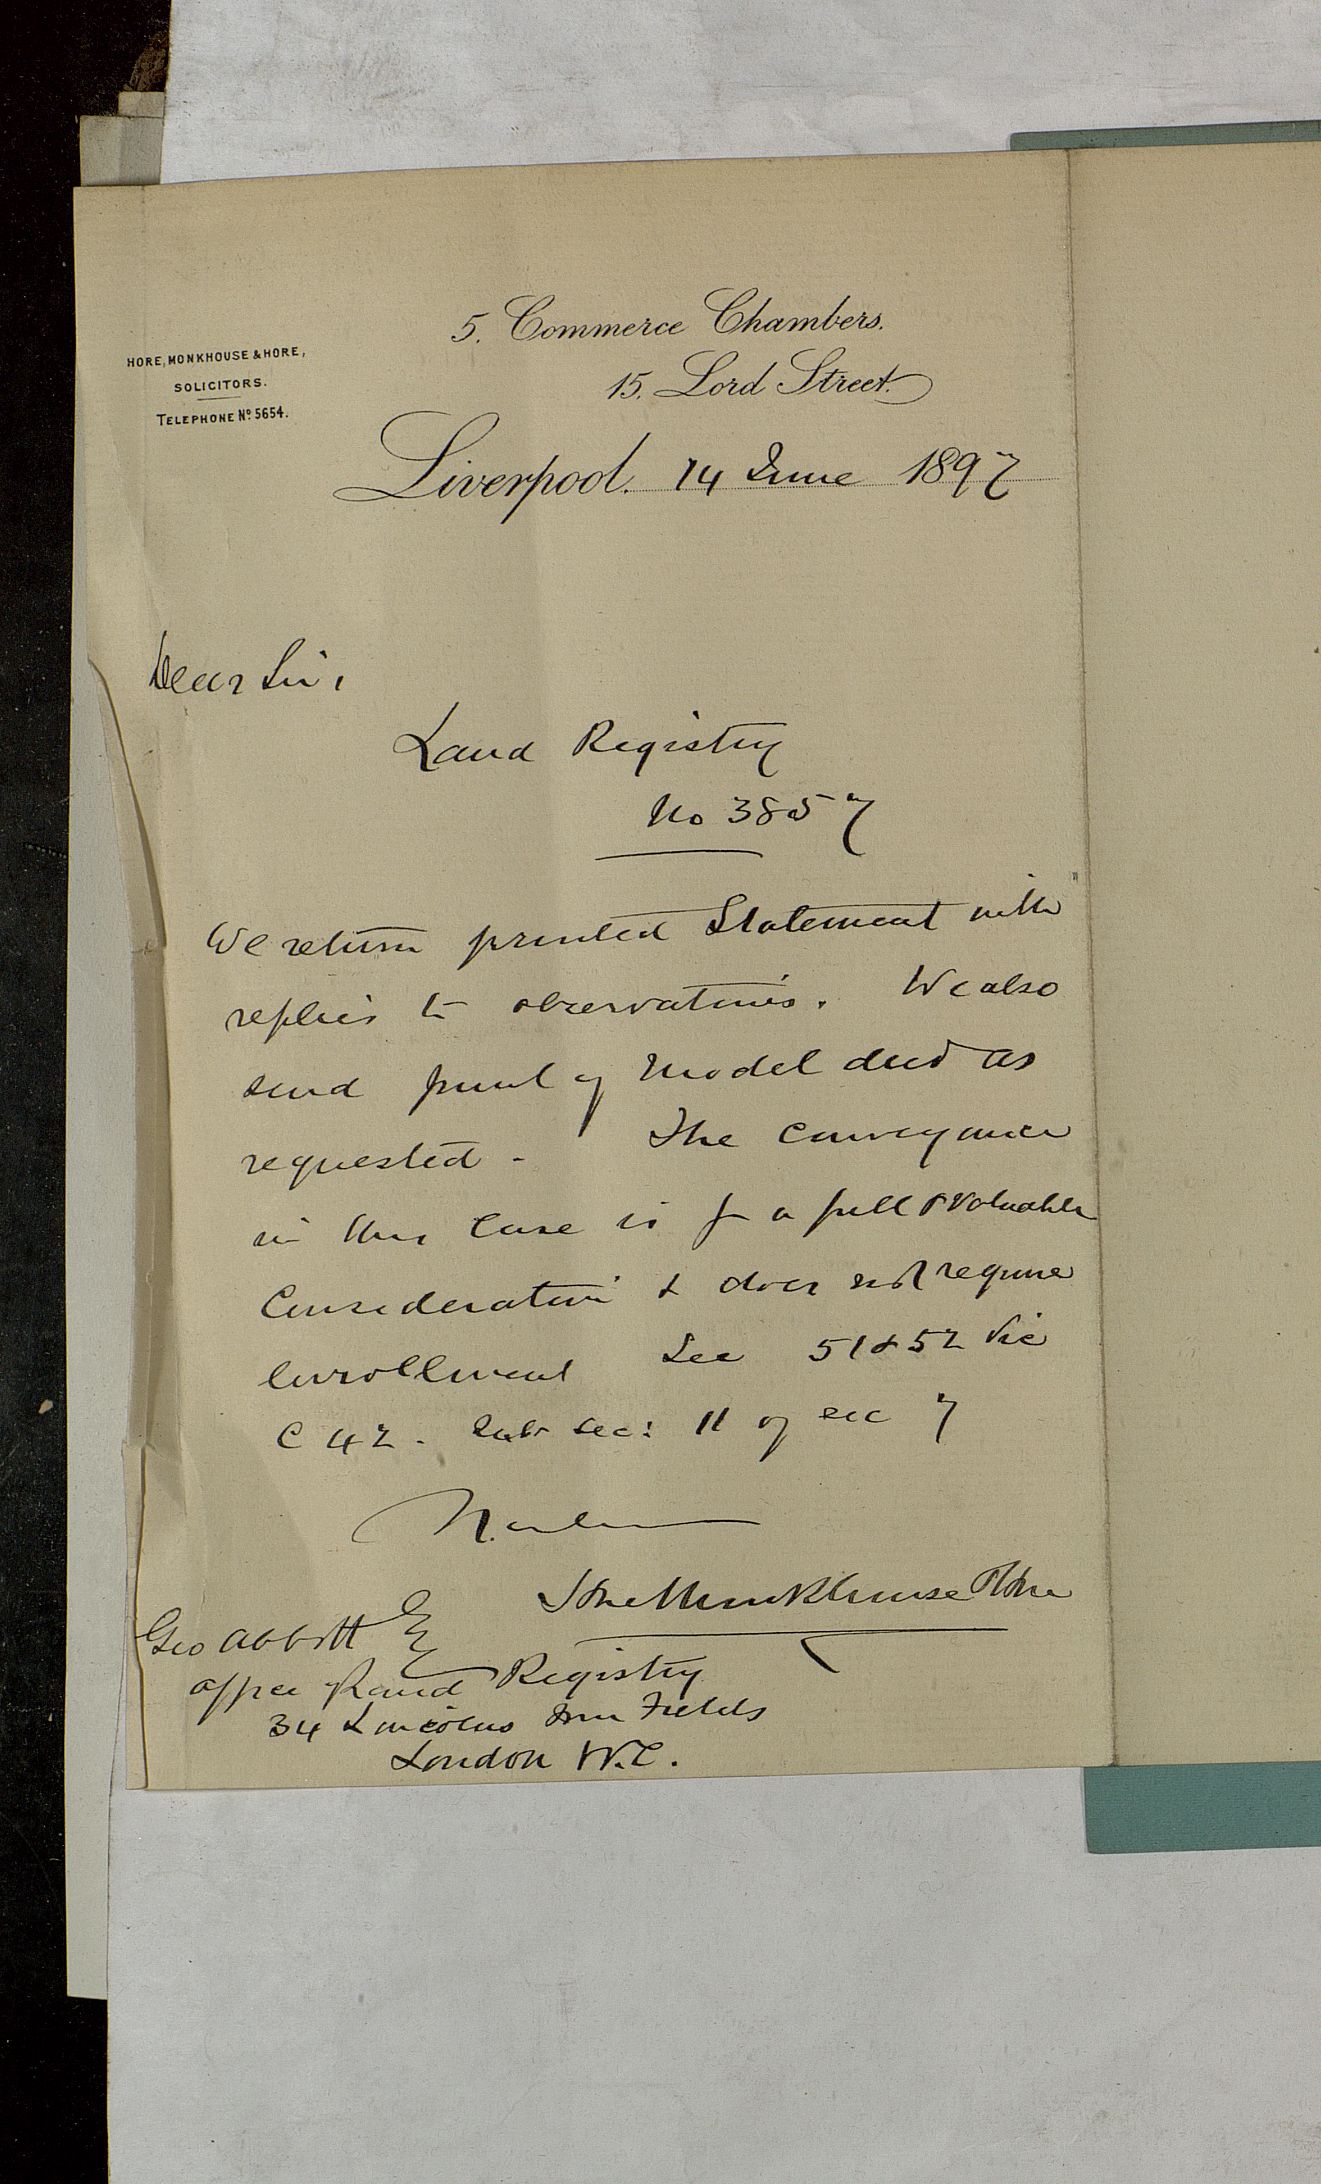 5. Commerce Chambers.
15. Lord Street.
HORE, MONKHOUSE & HORE,
SOLICITORS.
TELEPHONE No. 5654.
Liverpool. 14 June 1897
Dear Sir,
Land Registry
No 3857
We return printed Statement with
replies to observations. We also
send print of Model deed as
requested - The Conveyance
in this case is for a full & valuable
Consideration & does not require
enrollment See 51 & 52 Vic
C 42. Sub sec: 11 of sec 7
Hore Monkhouse & Hore
Geo Abbott Esq
Office Land Registry
34 Lincolns Inn Fields
London W.C.